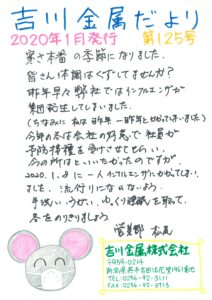 吉川金属だより
2020年1月発行 第125号
寒さ本番の季節になりました。
皆さん体調はくずしてませんか?
昨年早々弊社ではインフルエンザが
集団発生してしまいました。
(ちなみに私は昨年一昨年とかかってしまいました)
今回の冬は会社の好意で社員が
予防接種を受けさせてもらい、
今の所はといいたかったのですが、
2020.1.8に一人インフルエンザにかかってしまい
ました。流行りにならないよう
手洗い、うがい、ゆっくり睡眠を取って、
冬をのりきりましょう。
営業部
吉川金属株式会社
〒959-0214
新潟県燕市吉田法花堂1961番地
TEL:0256-92-3111
FAX:0256-92-3713